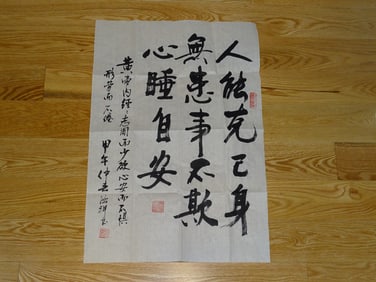 人能克己身
無患事不欺
心睡自安
黄帝内经：志闲而少欲心安而不惧
形劳而不倦
甲午仲春